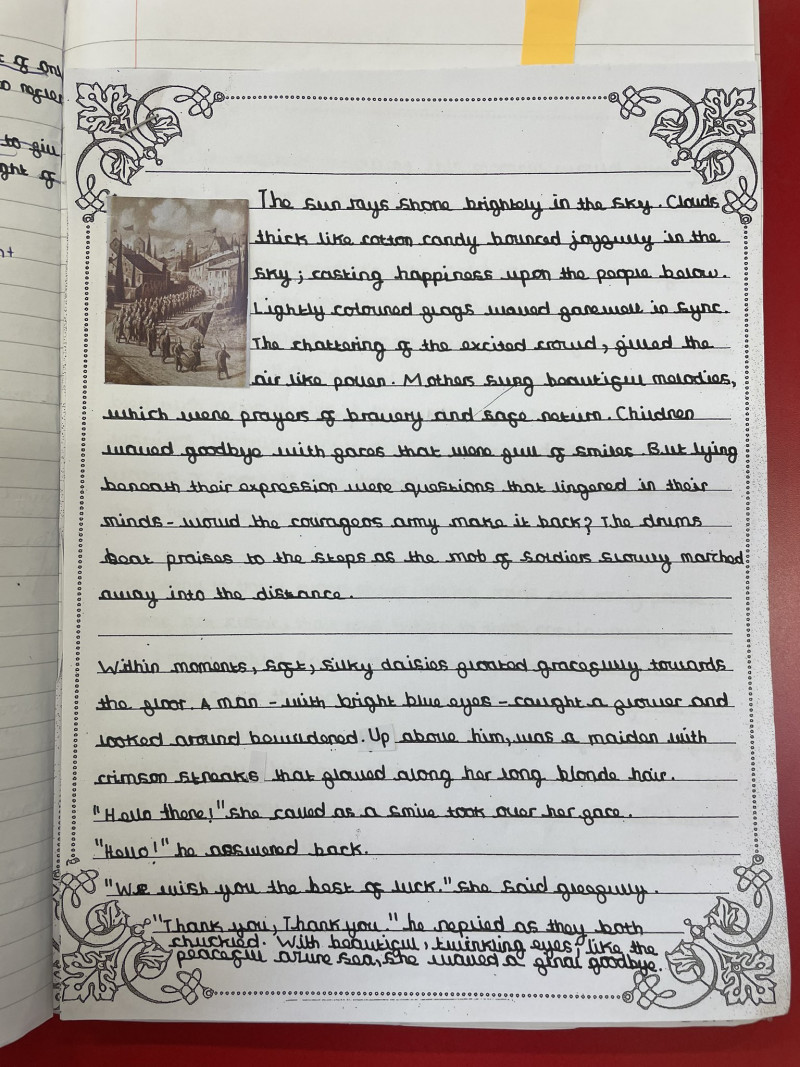 of ons
to give
ght of
The sun rays shone brightely in the sky. Clouds
thick like cotton candy bounced joyfully in the
sky; casting happiness upon the people below.
Lightly coloured flags waved farewell in sync.
The chattering of the excited crowd, filled the
air like pollen. Mothers sung beautiful melodies,
which were prayers of bravery and safe return. Children
waved goodbye with faces that were full of smiles. But lying
beneath their expression were questions that lingered in their
minds - would the courageos army make it back? The drums
beat praises to the steps as the mob of soldiers slowly marched
away into the distance.
Within moments, soft, silky daisies floated gracefully towards
the floor. A man - with bright blue eyes - caught a flower and
looked around bewildered. Up above him, was a maiden with
crimson streaks that flowed along her long blonde hair.
"Hello there!" she called as a smile took over her face.
"Hello!" he asswered back.
"We wish you the best of luck." she said gleefully.
"Thank you, Thank you " he replied as they both
chuckled. With beautiful, twinkling eyes, like the
peaceful azure sea, she waved a final goodbye.